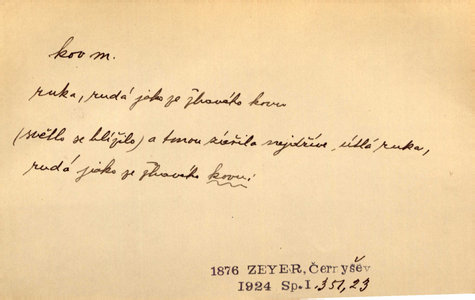 kov m.
ruka, rudá jako ze žhavého kovu
(světlo se blížilo) a tmou zářila nejdříve útlá ruka,
rudá jako ze žhavého kovu;
1876 ZEYER, Černyšěv
1924 Sp.I. 351,23